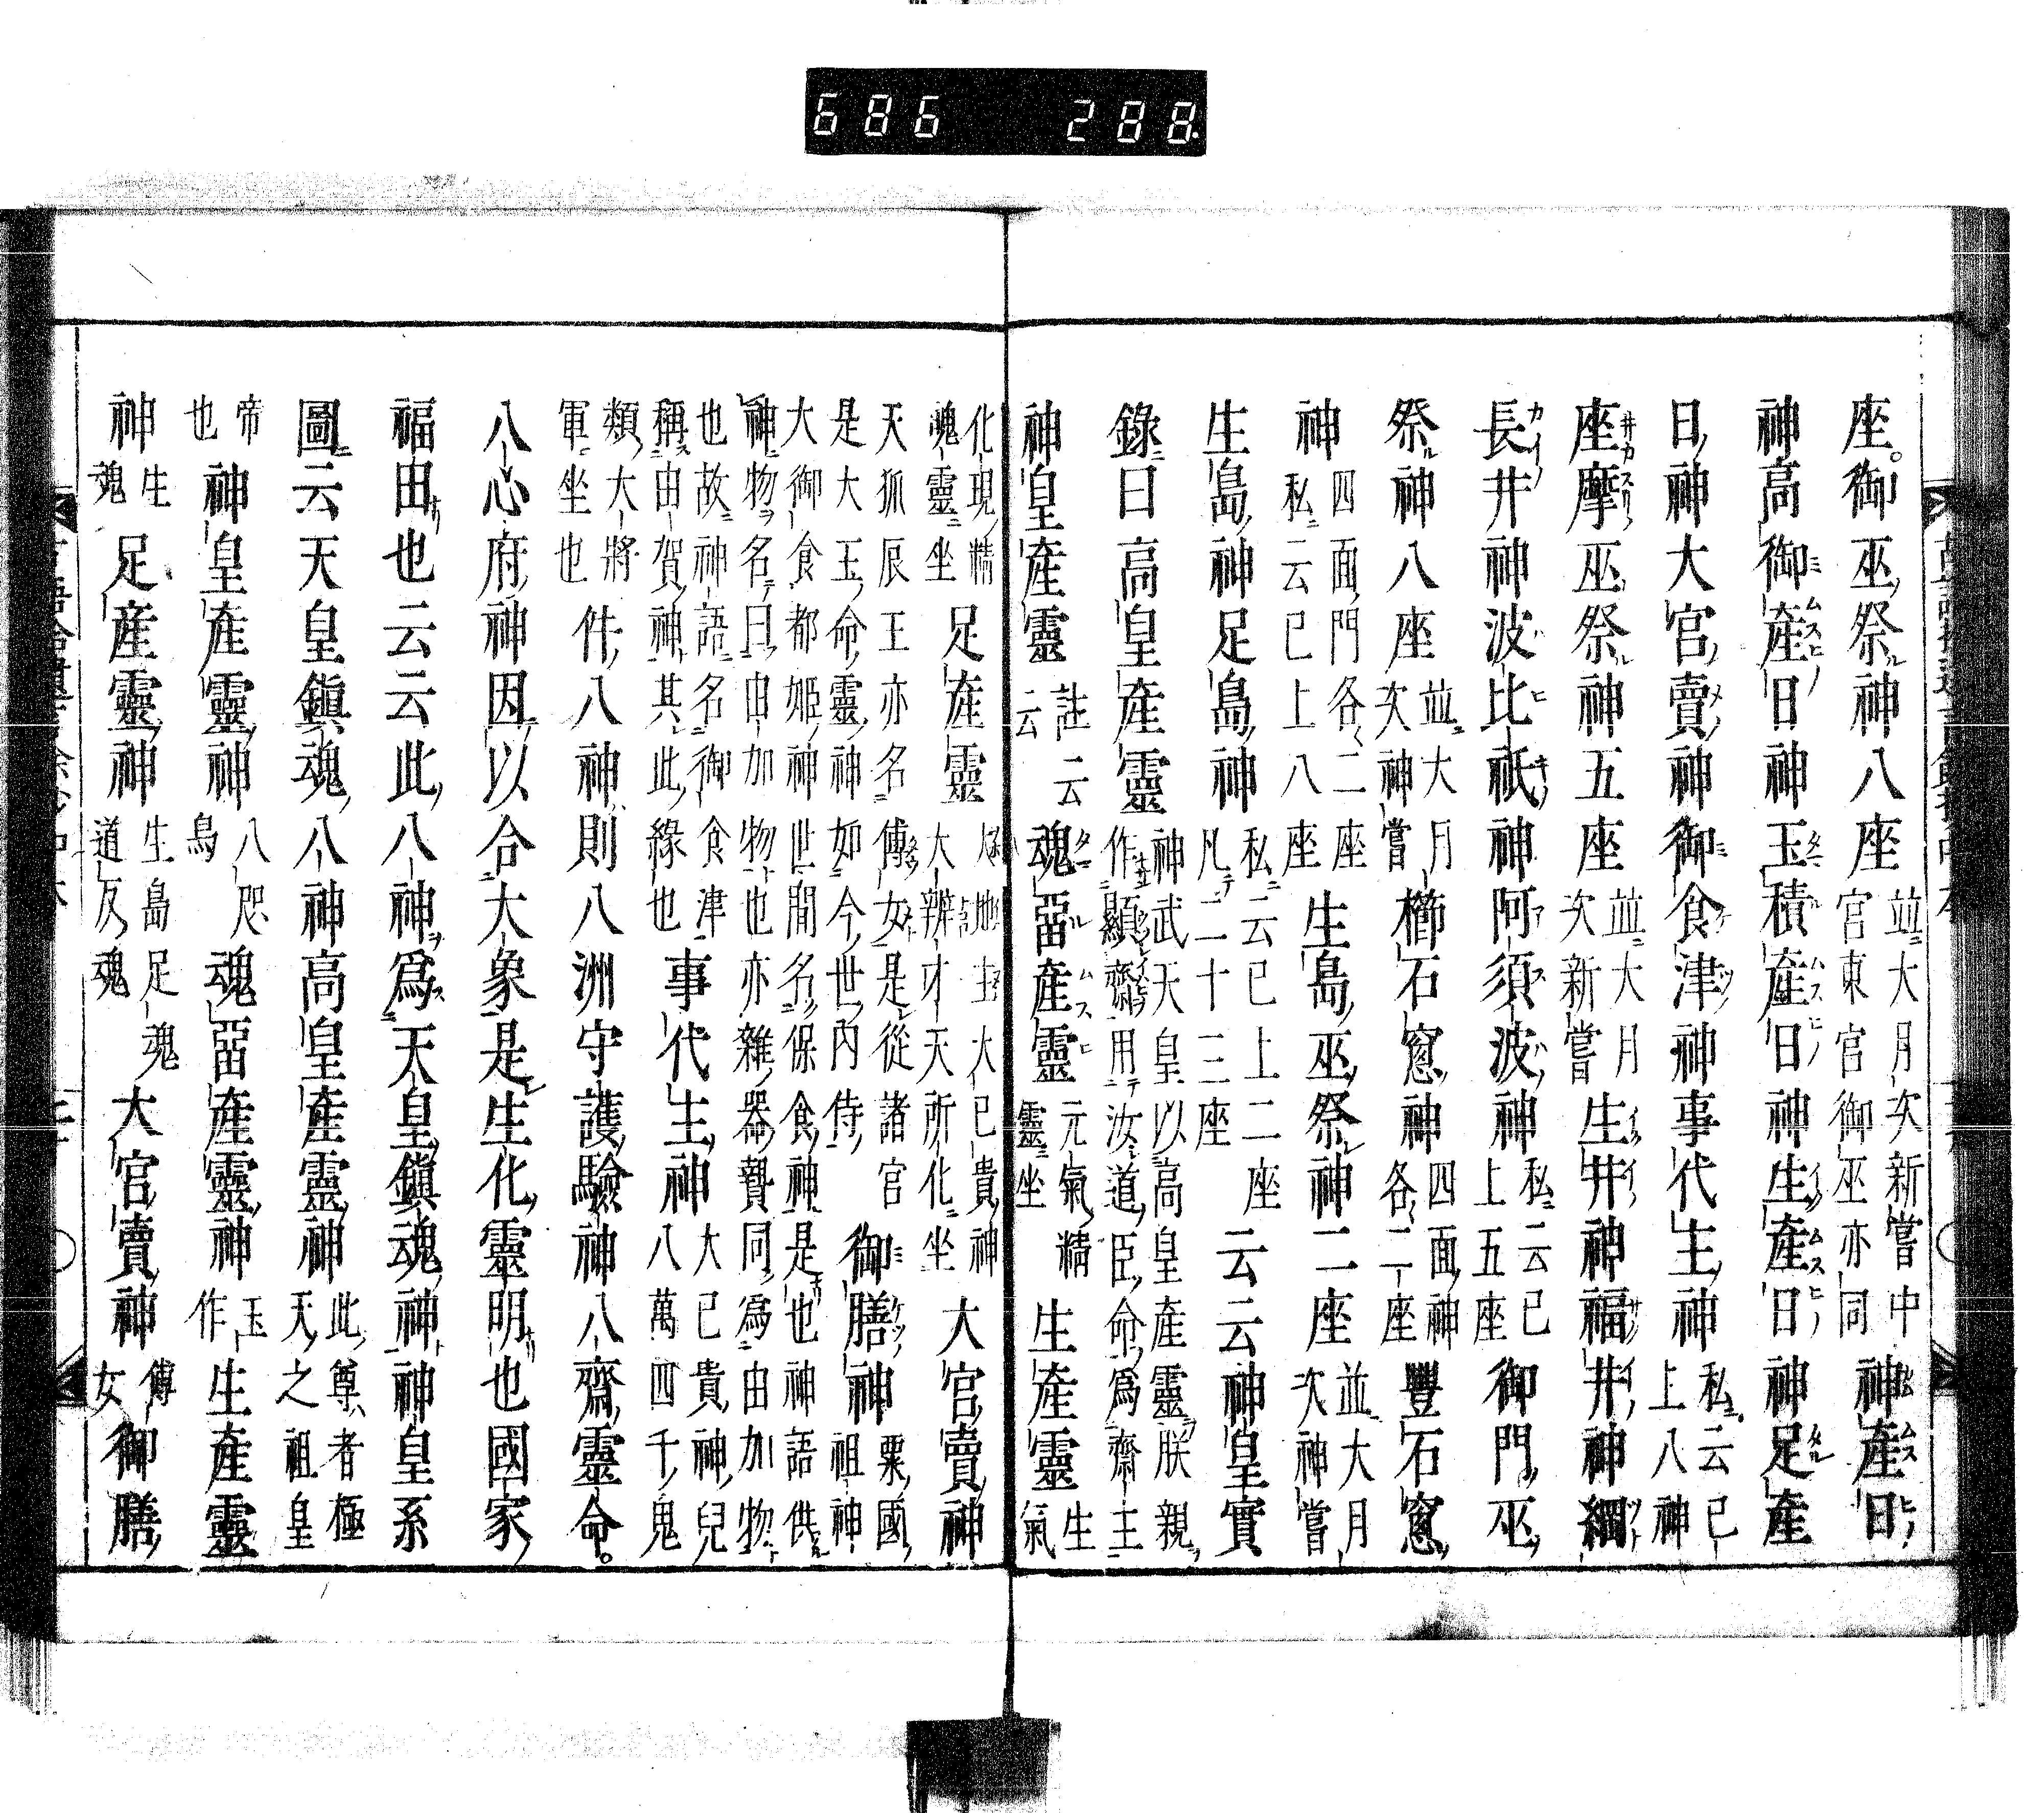 686 288.
座。御巫祭神八座 並大月次新嘗中宮東宮御巫亦同 神產日
神高御產日神玉積產日神生產日神足產
日神大宮賣神御食津神事代主神 私云已上八神
座摩巫祭神五座 並大月次新嘗 生井神福井神綱
長井神波比祇神阿須波神 私云已上五座 御門巫
祭神八座 並大月次神嘗 櫛石窓神 四面神各二座 豐石窓
神 四面門各二座私云已上八座 生島巫祭神二座 並大月次神嘗
生島神足島神 私云已上二座凡二十三座 云云神皇實
錄曰高皇產靈 神武天皇以高皇產靈朕親作顯齋用汝道臣命爲齋主
神皇產靈 註云云 魂留產靈 元氣精靈坐 生產靈 生氣
化現精魂靈坐 足產靈 大地主大已貴神大辨才天所化坐 大宮賣神
天狐辰王亦名傅女是從諸官是大玉命靈神如今世內侍 御膳神 粟國祖神
大御食都姬神世間名保食神是也神語供神物名曰由加物也亦雜器贄同爲由加物
也故神語名御食津稱由賀神其此緣也 事代主神 大已貴神兒八萬四千鬼
類大將軍坐也 件八神則八洲守護驗神八齋靈命。
八心府神因以合大象是生化靈明也國家
福田也云云此八神爲天皇鎭魂神神皇系
圖云天皇鎭魂八神高皇產靈神 此尊者極天之祖皇
帝也 神皇產靈神 八咫鳥 魂留產靈神 玉作 生產靈
神 生魂 足產靈神 生島足魂道反魂 大宮賣神 傅女 御膳